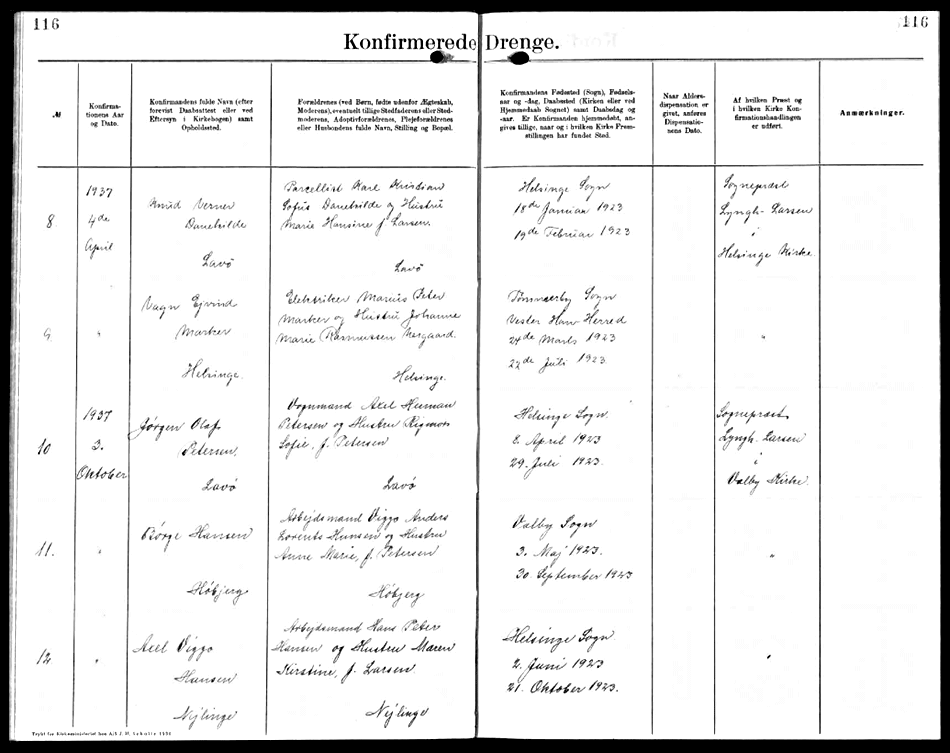 116
116
Konfirmerede Drenge.
№
Konfirma-
tionens Aar
og Dato.
Konfirmandens fulde Navn (efter
forevist Daabsattest eller ved
Eftersyn i Kirkebogen) samt
Opholdssted.
Forældrenes (ved Børn, fødte udenfor Ægteskab,
Moderens), eventuelt tillige Stedfaderens eller Sted-
moderens, Adoptivforældrenes, Plejeforældrenes
eller Husbondens fulde Navn, Stilling og Bopæl.
Konfirmandens Fødested (Sogn), Fødsels-
aar og -dag, Daabssted (Kirken eller ved
Hjemmedaab Sognet) samt Daabsdag og
-aar. Er Konfirmanden hjemmedøbt, an-
gives tillige, naar og i hvilken Kirke Frem-
stillingen har fundet Sted.
Naar Alders-
dispensation er
givet, anføres
Dispensatio-
nens Dato.
Af hvilken Præst og
i hvilken Kirke Kon-
firmationshandlingen
er udført.
Anmærkninger.
8.
1937
4de
April
Knud Verner
Danehilde
Lavø
Parcellist Karl Kristian
Sofus Danehilde og Hustru
Marie Hansine f. Larsen.
Lavø
Helsinge Sogn
18de Januar 1923
19de Februar 1923
Sognepræst
Lyngh-Larsen
i
Helsinge Kirke
9.
"
Vagn Ejvind
Marker
Helsinge.
Elektriker Marius Peter
Marker og Hustru Johanne
Marie Rasmussen
Helsinge.
Sogn
Vester Han Herred
24de Marts 1923
22de Juli 1923
"
10
1937
3.
Oktober
Jørgen Olaf
Petersen.
Lavø
Vognmand Axel Herman
Petersen og Hustru Rigmor
Sofie, f. Petersen
Lavø
Helsinge Sogn.
2. April 1923
29. Juli 1923.
Sognepræst
Lyngh. Larsen
i
Valby Kirke.
11.
"
Børge Hansen
Højbjerg
Arbejdsmand Viggo Anders
Lorents Hansen og Hustru
Anne Marie, f. Petersen
Højbjerg
Valby Sogn
3. Maj 1923.
30 September 1923
"
12.
"
Axel Viggo
Hansen
Nejlinge
Arbejdsmand Hans Peter
Hansen og Hustru Maren
Kirstine, f. Larsen.
Nejlinge
Helsinge Sogn
2. Juni 1923
21. Oktober 1923.
"